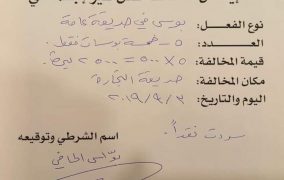 نوع الفعل: بوسي في حديقة عامة
العدد: ٥ - خمسة بوسات فقط
قيمة المخالفة: ٥ × ٥٠٠ = ٢٥٠٠ ليرة
مكان المخالفة: حديقة التجارة
اليوم والتاريخ: ٢٠١٩/٩/٣
سددت نقداً
اسم الشرطي وتوقيعه